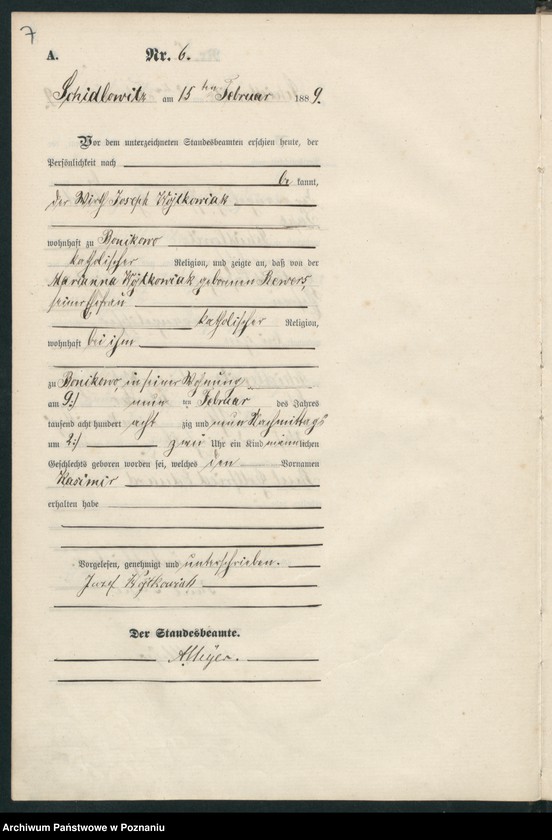 7
A. Nr. 6.
Schidlowitz am 15 ten Februar 1889.
Vor dem unterzeichneten Standesbeamten erschien heute, der
Persönlichkeit nach
be kannt,
der Wirth Joseph Wojtkowiak
wohnhaft zu Bonikowo
katholischer Religion, und zeigte an, daß von der
Marianna Wojtkowiak geborenen Rewers,
seiner Ehefrau
katholischer Religion,
wohnhaft bei ihm
zu Bonikowo, in seiner Wohnung
am 9:) neun ten Februar des Jahres
tausend acht hundert acht zig und neun Nachmittags
um 2:) zwei Uhr ein Kind männlichen
Geschlechts geboren worden sei, welches den Vornamen
Kasimir
erhalten habe
Vorgelesen, genehmigt und unterschrieben.
Jozef Wojtkowiak
Der Standesbeamte.
Archiwum Państwowe w Poznaniu